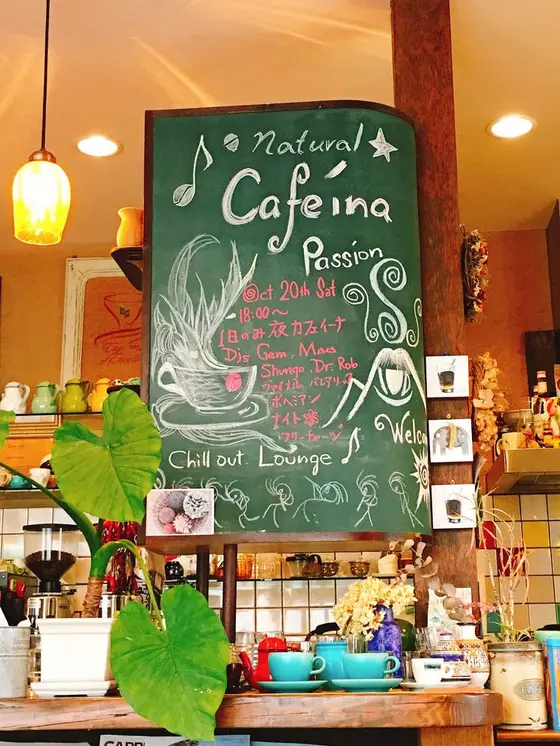 Natural
Cafeína
Passion
Oct 20th Sat
18:00〜
1日のみ夜カフェイーナ
DJs Gem, Mao
Shungo, Dr. Rob
ヴァイナル バレアリック
ボヘミアン
ナイト
フリーチャージ
Welco
Chill out. Lounge
CAFE